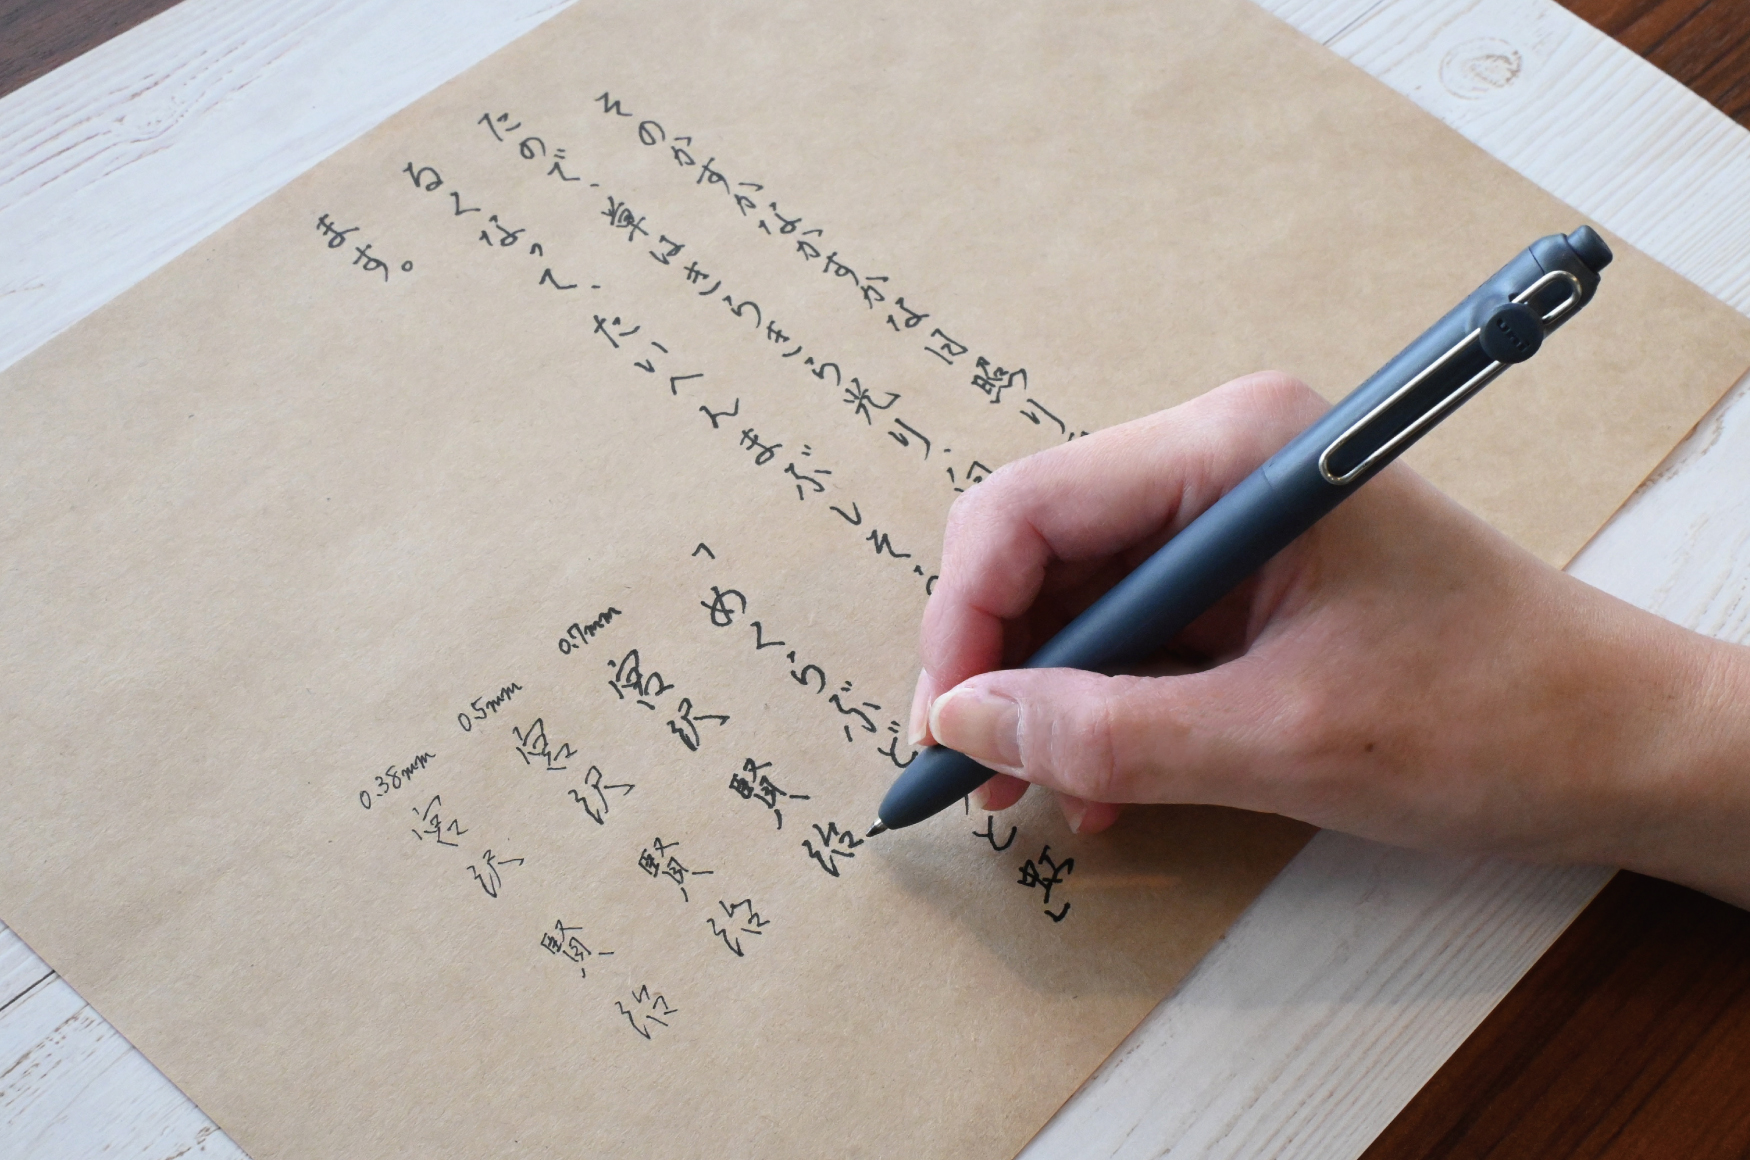 そのかすかなかすかな日照り
たので、草はきらきら光り、向
るくなって、たいへんまぶしそう
ます。
「めくらぶど と虹」
0.7mm 宮沢 賢治
0.5mm 宮沢 賢治
0.38mm 宮沢 賢治
uni